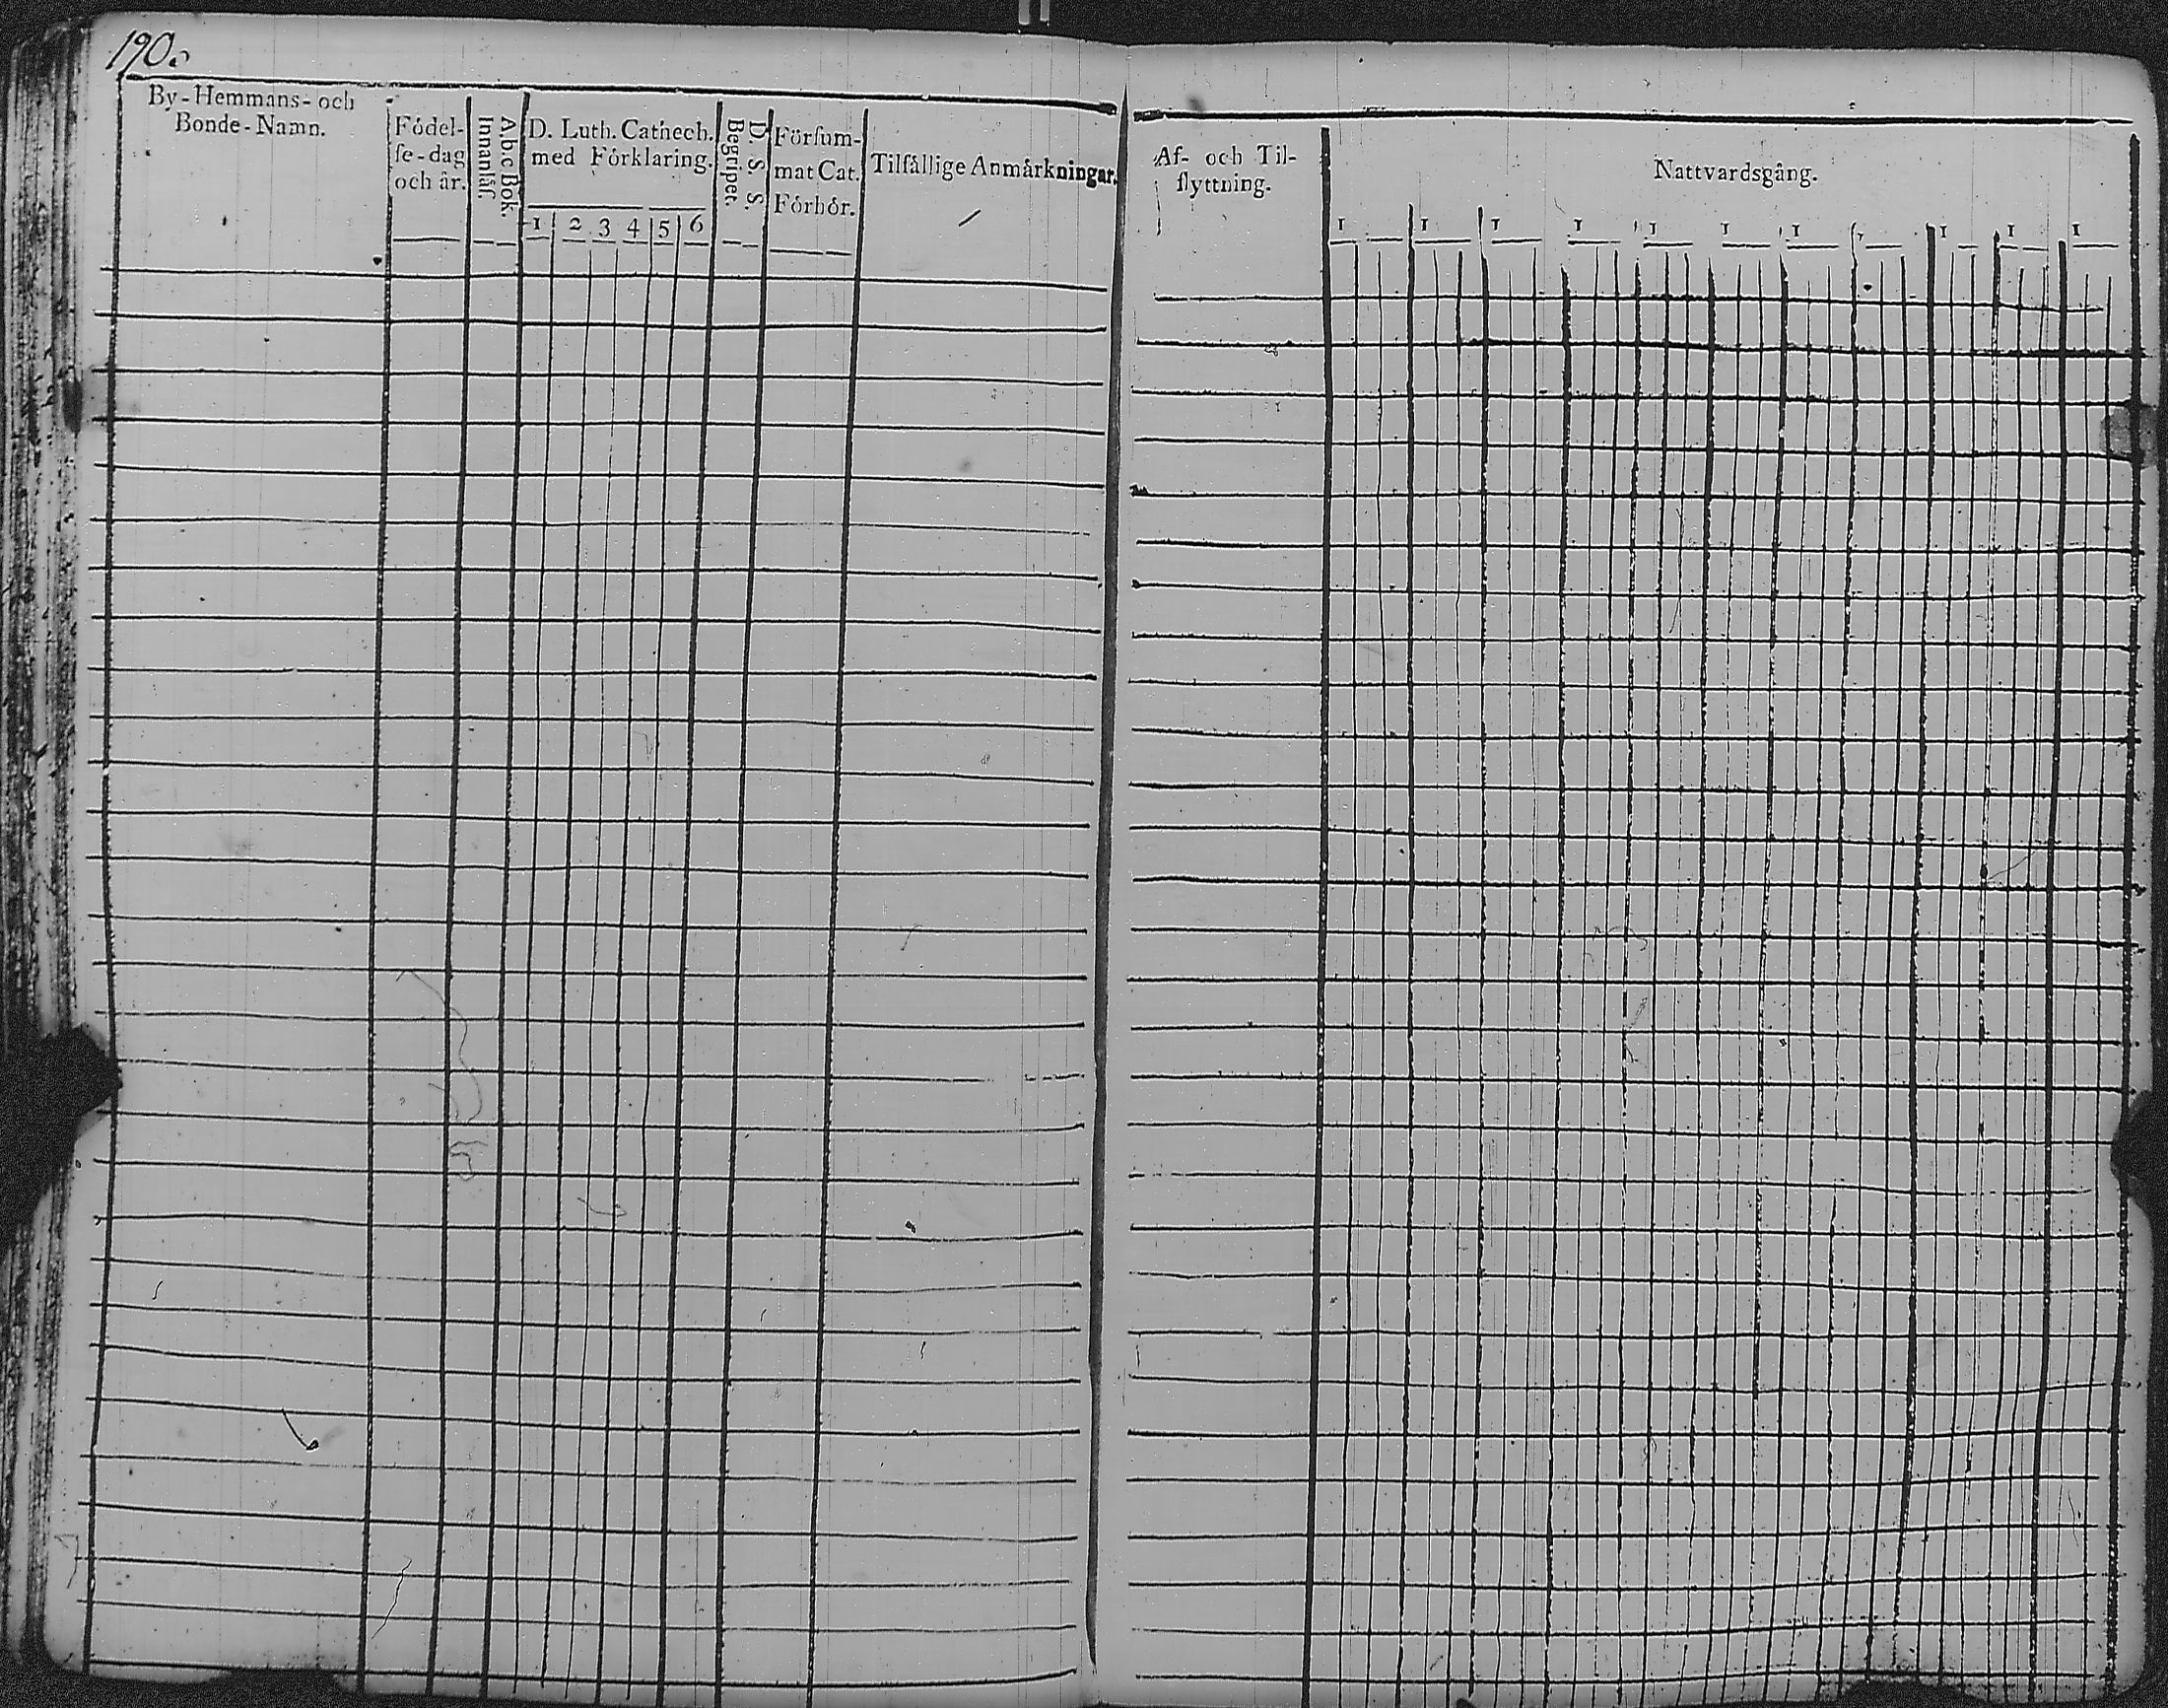 190.
By-Hemmans- och
Bonde-Namn.
Födel-
ſe-dag
och år.
Innanläſ.
A.b.c Bok.
D. Luth. Cathech.
med Förklaring.
1 2 3 4 5 6
Begriper.
D. S. S.
Förſum-
mat Cat.
Förhör.
Tilfällige Anmärkningar.
Af- och Til-
flyttning.
Nattvardsgång.
1 1 1 1 1 1 1 1 1 1